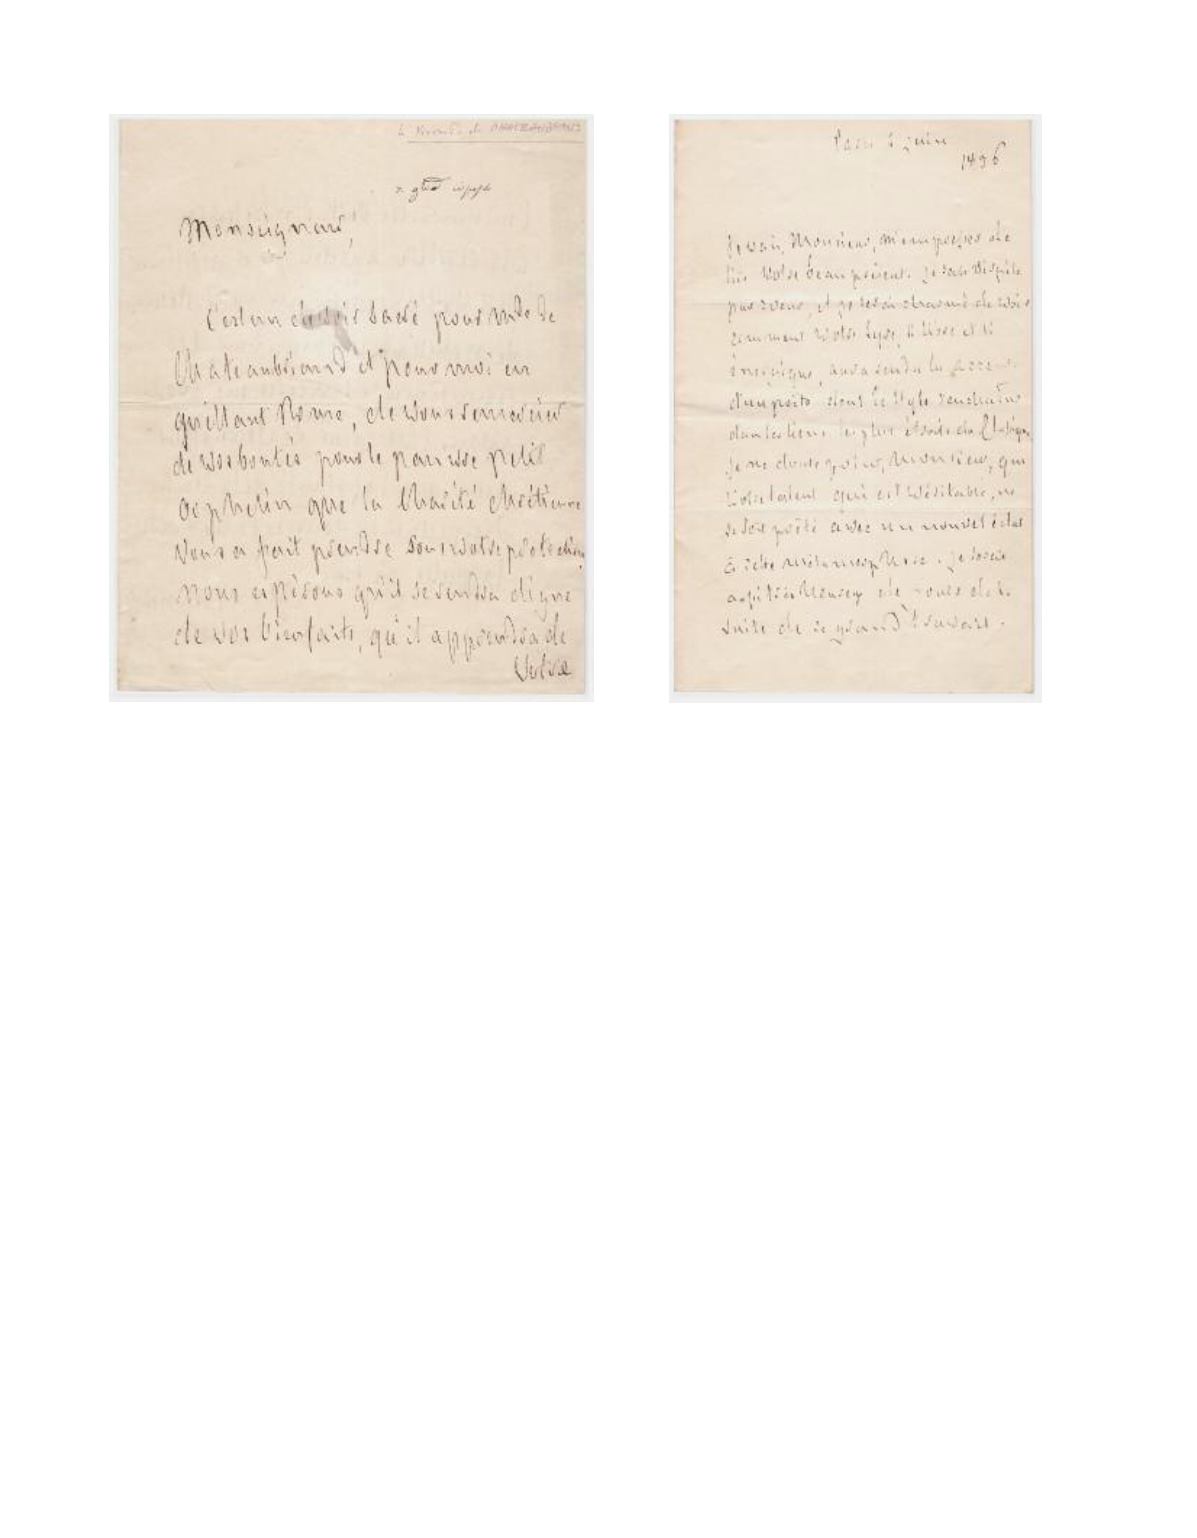 le Vicomte de CHATEAUBRIAND
Monseigneur,
C'est un devoir sacré pour Mde de
Chateaubriand et pour moi en
quittant Rome, de vous remercier
de vos bontés pour le pauvre petit
orphelin que la Charité chrétienne
vous a fait prendre sous votre protection.
nous espérons qu'il se rendra digne
de vos bienfaits, qu'il apprendra de
Votre
Paris juin
1836
Je vais, Monsieur, m'empresser de
lire votre beau présent. je
et je serai charmé de voir
comment votre lyre,
énergique, aura rendu les accents
d'un poète dont le style
dans les liens les plus étroits du
je ne doute point, Monsieur, que
votre talent qui est véritable, ne
se soit prêté avec un nouvel éclat
à cette métamorphose. je serai
assez heureux de vous de la
suite de ce grand travail.